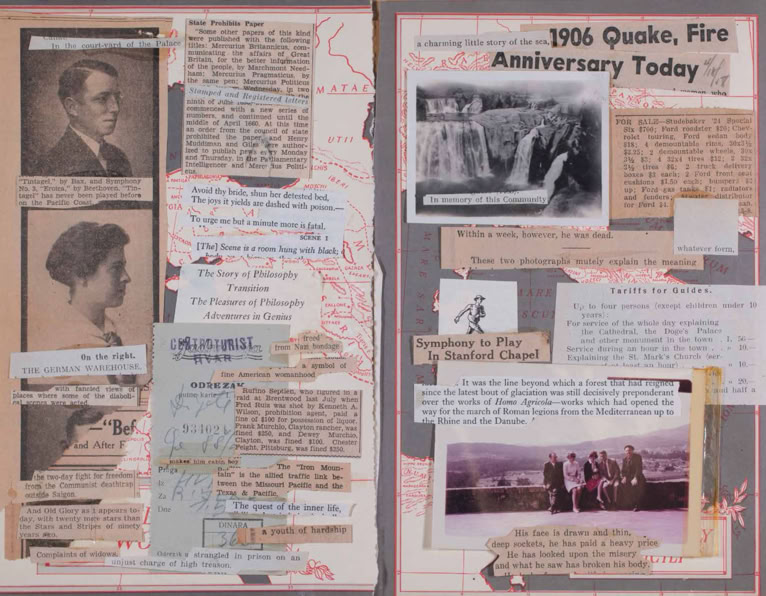 In the court-yard of the Palace
"Tintagel," by Bax, and Symphony
No. 3, "Eroica," by Beethoven. "Tin-
tagel" has never been played before
on the Pacific Coast.
On the right.
THE GERMAN WAREHOUSE,
with fancied views of
places where some of the diaboli-
cal scenes were acted.
"Bef
and After F
the two-day fight for freedom
from the Communist deathtrap
outside Saigon.
And Old Glory as it appears to-
day, with twenty more stars than
the Stars and Stripes of ninety
years ago.
Complaints of widows.
State Prohibits Paper
"Some other papers of this kind
were published with the following
titles: Mercurius Britannicus, com-
municating the affairs of Great
Britain, for the better information
of the people, by Marchmont Need-
ham; Mercurius Pragmaticus, by
the same pen; Mercurius Politicus
Wednesday, in two
Stamped and Registered letters
ninth of June
commenced with a new series of
numbers, and continued until the
middle of April 1660. At this time
an order from the council of state
prohibited the paper and Henry
Muddiman and Giles were author-
ized to publish news every Monday
and Thursday, in the Parliamentary
Intelligencer and Mercurius Politi-
cus
Avoid thy bride, shun her detested bed,
The joys it yields are dashed with poison.—
To urge me but a minute more is fatal.
SCENE I
[The] Scene is a room hung with black;
The Story of Philosophy
Transition
The Pleasures of Philosophy
Adventures in Genius
CENTROTURIST
HVAR
ODREZAK
freed
from Nazi bondage
a symbol of
fine American womanhood
Rufino Beptien, who figured in a
raid at Brentwood last July when
Fred Ruis was shot by Kenneth A.
Wilson, prohibition agent, paid a
fine of $100 for possession of liquor.
Frank Murchio, Clayton rancher, was
fined $250, and Dewey Murchio,
Clayton, was fined $100. Chester
Feight, Pittsburg, was fined $250.
makes him catch
The "Iron Moun-
tain" is the allied traffic link be-
tween the Missouri Pacific and the
Texas & Pacific.
The quest of the inner life,
DINARA
36
a youth of hardship
a strangled in prison on an
unjust charge of high treason.
MATAE
UTII
a charming little story of the sea,
1906 Quake, Fire
Anniversary Today
In memory of this Community
FOR SALE—Studebaker '24 Special
Six $700; Ford roadster $20; Chev-
rolet touring, Ford sedan body
Within a week, however, he was dead.
whatever form,
These two photographs mutely explain the meaning
Tariffs for Guides.
Up to four persons (except children under 10
years):
For service of the whole day explaining
the Cathedral, the Doge's Palace
and other monument in the town
Service during an hour in the town
Explaining the St. Mark's Church (ser-
Symphony to Play
In Stanford Chapel
It was the line beyond which a forest that had reigned
since the latest bout of glaciation was still decisively preponderant
over the works of Homo Agricola—works which had opened the
way for the march of Roman legions from the Mediterranean up to
the Rhine and the Danube.
His face is drawn and thin,
deep sockets, he has paid a heavy price
He has looked upon the misery
and what he saw has broken his body.